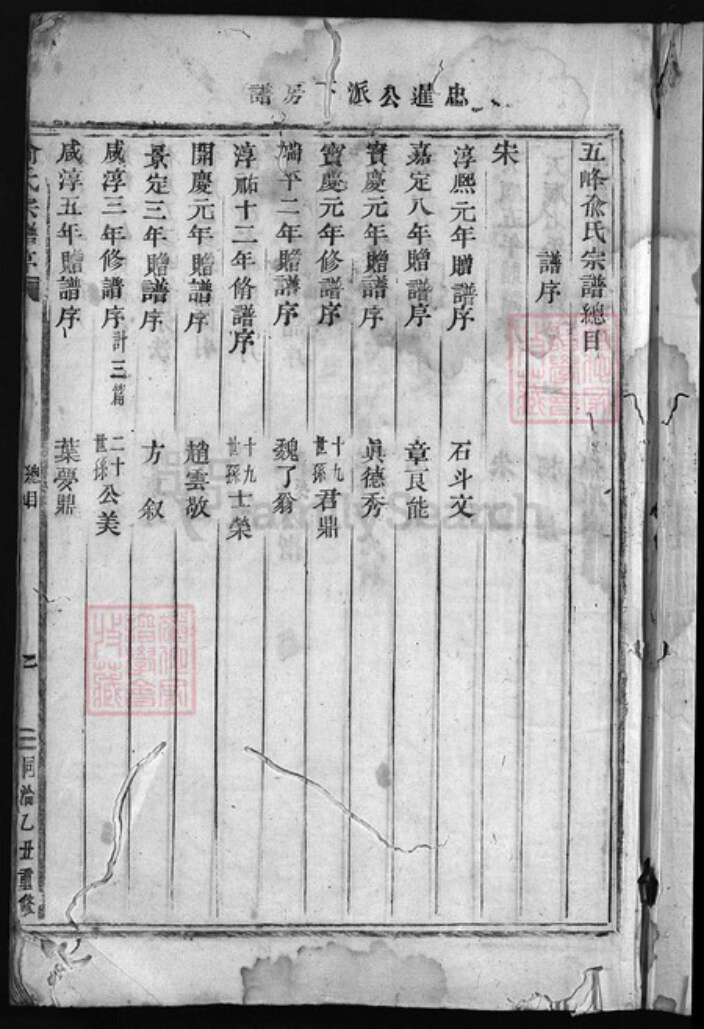 忠暹公派下房譜
五峰俞氏宗譜總目
譜序
宋
淳熙元年贈譜序 石斗文
嘉定八年贈譜序 章良能
寶慶元年贈譜序 眞德秀
寶慶元年修譜序 十九世孫君鼎
端平二年贈譜序 魏了翁
淳祐十二年脩譜序 十九世孫士榮
開慶元年贈譜序 趙雲敬
景定三年贈譜序 方叙
咸淳三年修譜序計三篇 二十世孫公美
咸淳五年贈譜序 葉夢鼎
俞氏宗譜序
總目
同治乙丑重修